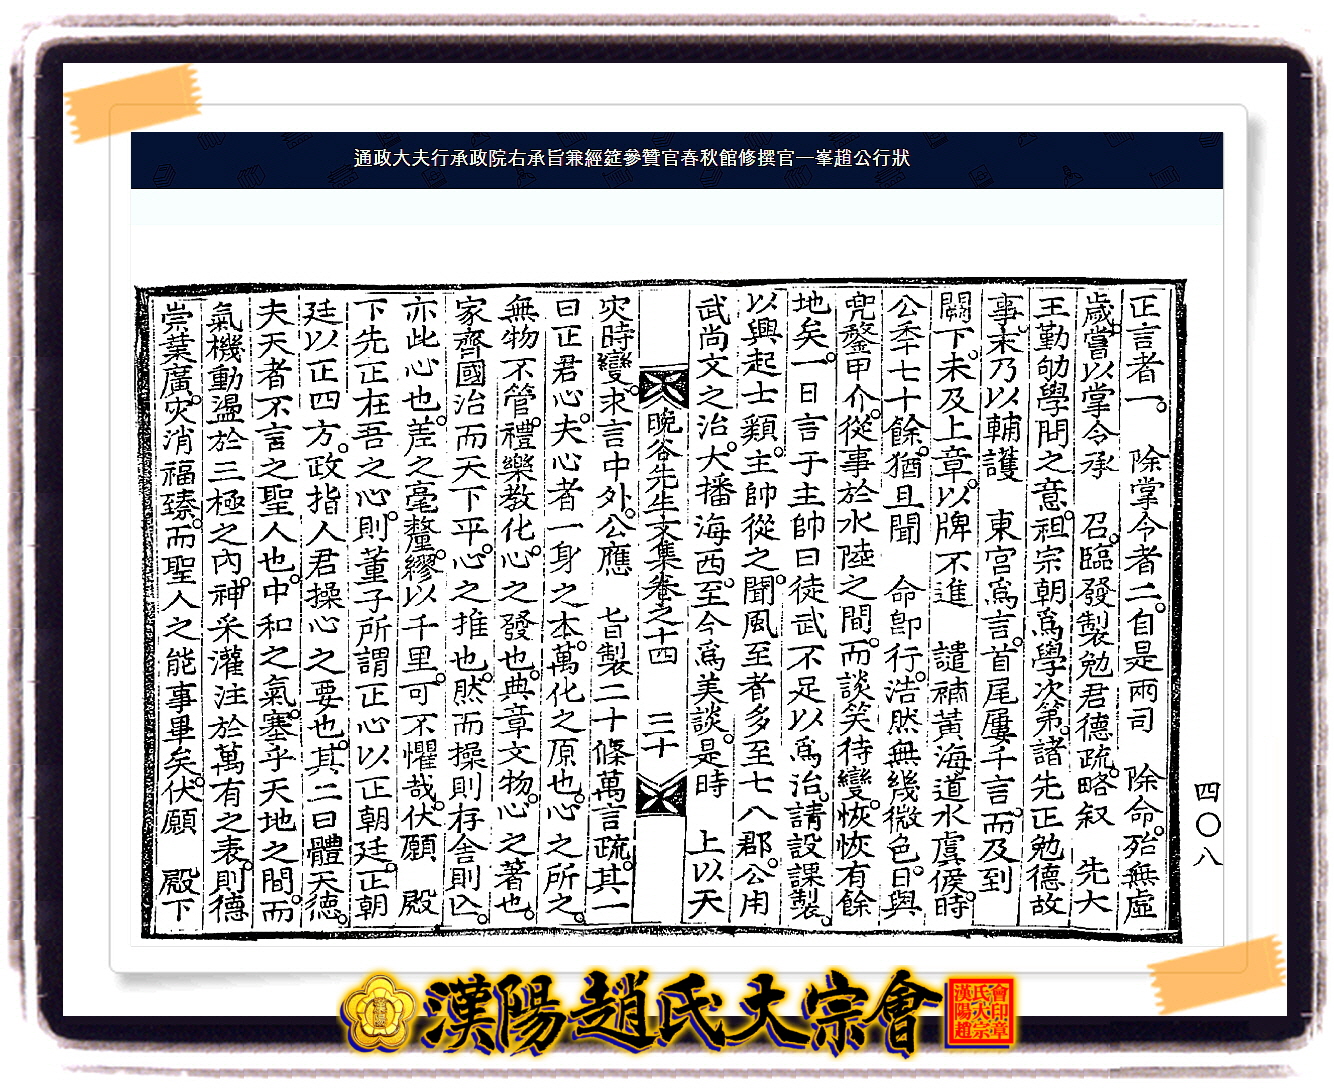 通政大夫行承政院右承旨兼經筵參贊官春秋館修撰官一峯趙公行狀
正言者一。 除掌令者二。自是兩司 除命。殆無虛
歲。嘗以掌令承 召。臨發製勉君德疏。略叙 先大
王勤劬學問之意。祖宗朝爲學次第。諸先正勉德故
事。末乃以輔護 東宮爲言。首尾屢千言。而及到
闕下。未及上章。以牌不進 譴補黃海道水虞候。時
公季七十餘。猶且聞 命卽行。浩然無幾微色。日與
兜鍪甲介。從事於水陸之間。而談笑待變。恢恢有餘
地矣。一日言于主帥曰徒武不足以爲治。請設課製。
以興起士類。主帥從之。聞風至者多至七八郡。公用
武尚文之治。大播海西。至今爲美談。是時 上以天
晩谷先生文集卷之十四 三十
灾時變。求言中外。公應 旨製二十條萬言疏。其一
曰正君心。夫心者一身之本。萬化之原也。心之所之。
無物不管。禮樂教化。心之發也。典章文物。心之著也。
家齊國治而天下平。心之推也。然而操則存舍則亾。
亦此心也。差之毫釐。繆以千里。可不懼哉。伏願 殿
下先正在吾之心。則董子所謂正心以正朝廷。正朝
廷以正四方。政指人君操心之要也。其二曰體天德。
夫天者不言之聖人也。中和之氣。塞乎天地之間。而
氣機動盪於三極之內。神采灌注於萬有之表。則德
崇業廣。灾消福臻。而聖人之能事畢矣。伏願 殿下
四〇八
漢陽趙氏大宗會
漢陽
漢陽趙氏大宗會印章